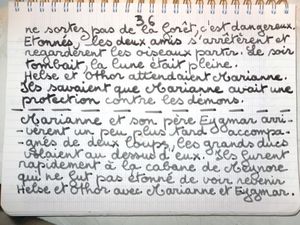 36
ne sortez pas de la forêt, c'est dangereux.
Etonnés les deux amis s'arrêtèrent et
regardèrent les oiseaux partir. Le soir
tombait, la lune était pleine.
Helse et Othor attendaient Marianne.
Ils savaient que Marianne avait une
protection contre les démons.
Marianne et son père Eygmar arri-
vèrent un peu plus tard accompa-
gnés de deux loups, les grands ducs
volaient au dessus d'eux. Ils furent
rapidement à la cabane de
qui ne fut pas étonné de voir revenir
Helse et Othor avec Marianne et Eygmar.